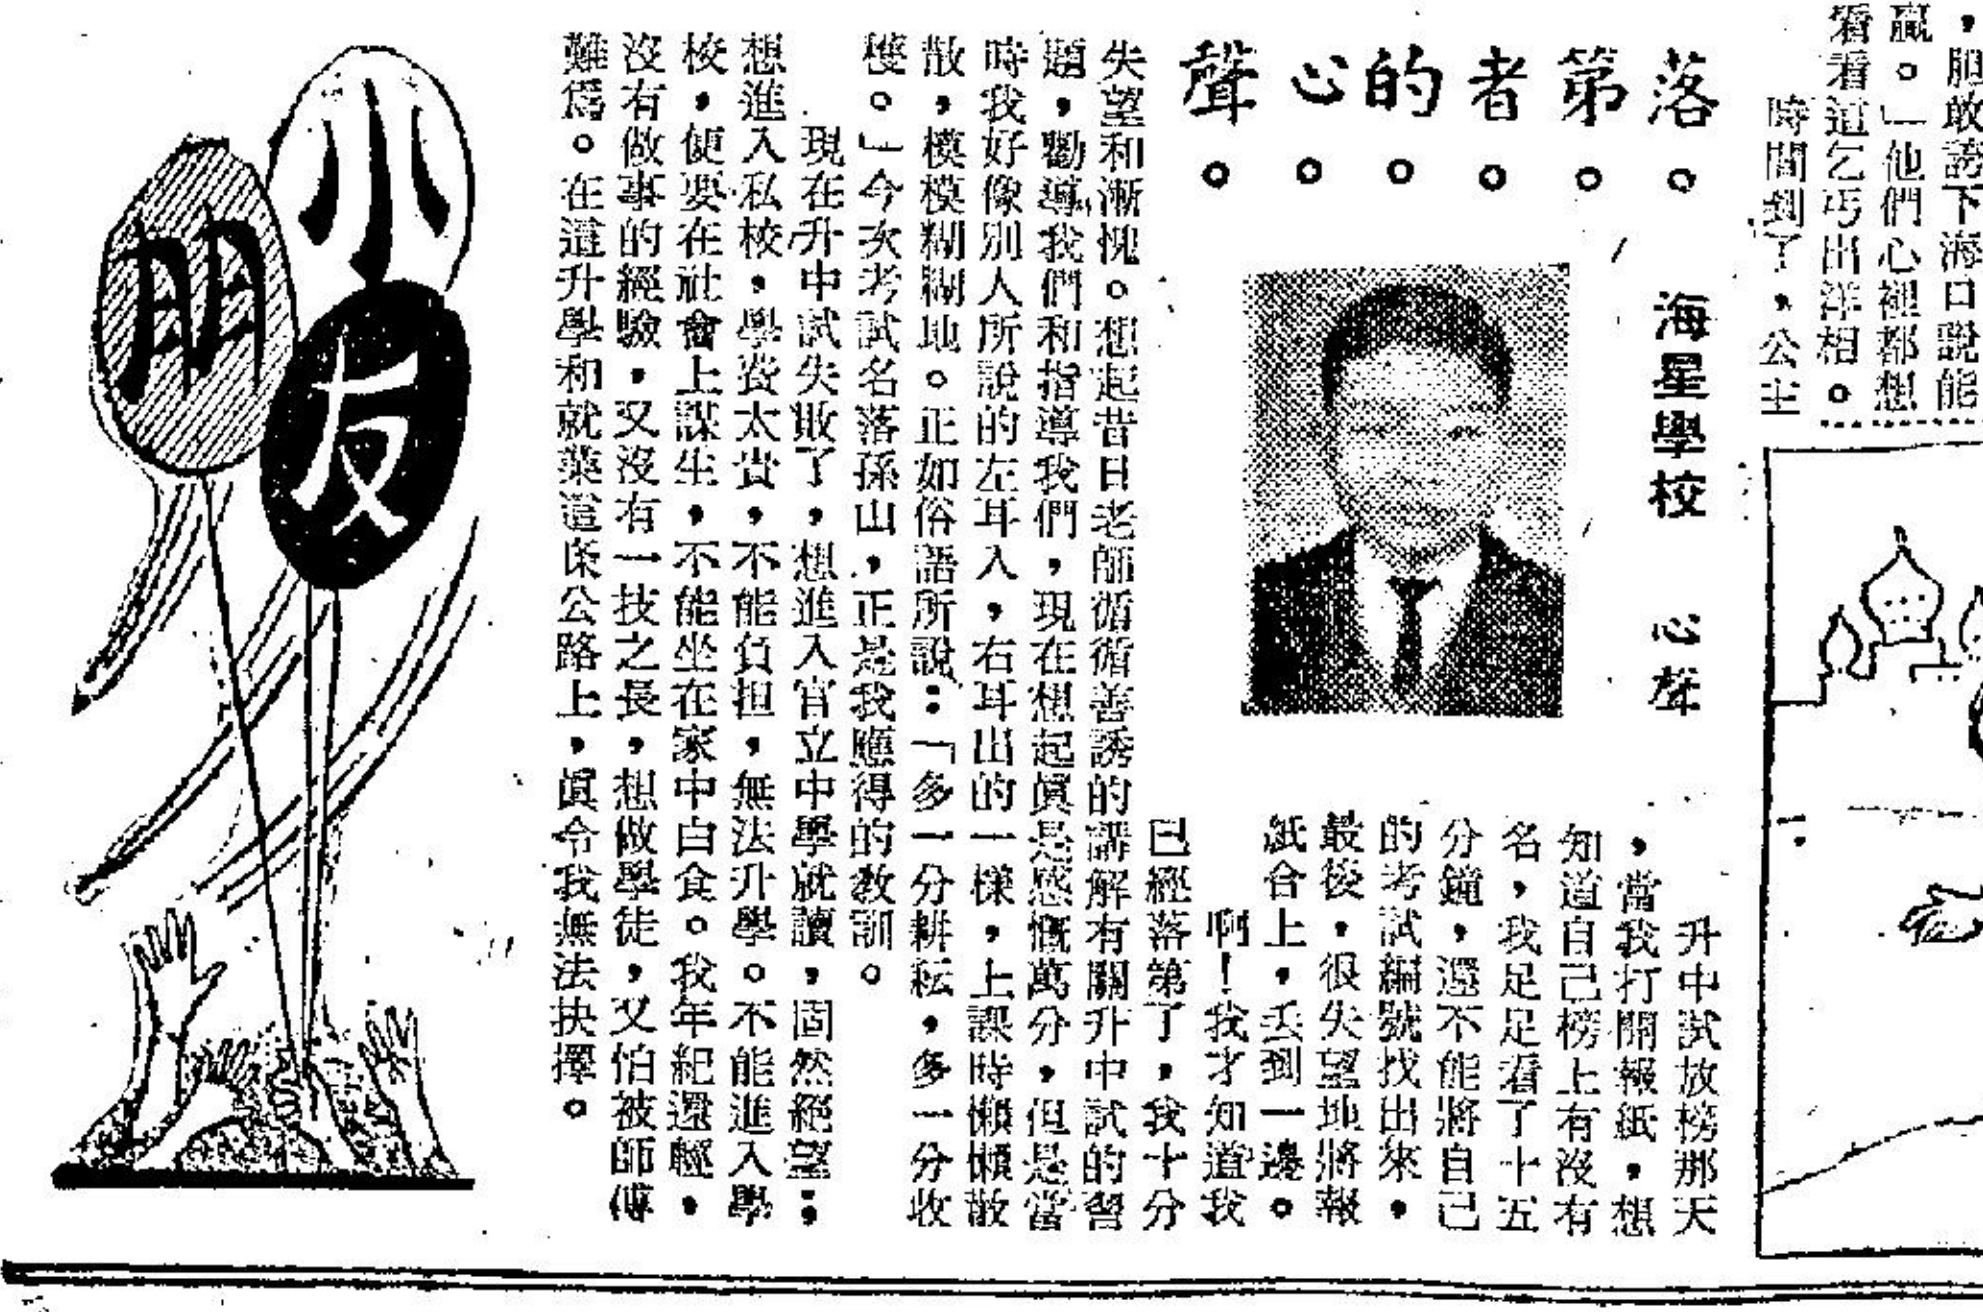 ，胆敢誇下海口說能
贏。」他們心裡都想
看看這乞丐出洋相。
時間到了，公主
落第者的心聲
海星學校　心聲
升中試放榜那天
，當我打開報紙，想
知道自己榜上有沒有
名，我足足看了十五
分鐘，還不能將自己
的考試編號找出來，
最後，很失望地將報
紙合上，丢到一邊。
啊！我才知道我
已經落第了，我十分
失望和漸愧。想起昔日老師循循善誘的講解有關升中試的習
題，勸導我們和指導我們，現在想起眞是感慨萬分，但是當
時我好像別人所說的左耳入，右耳出的一樣，上課時懶懶散
散，模模糊糊地。正如俗語所說：「多一分耕耘，多一分收
穫。」今次考試名落孫山，正是我應得的教訓。
現在升中試失敗了，想進入官立中學就讀，固然絕望；
想進入私校，學費太貴，不能負担，無法升學。不能進入學
校，便要在社會上謀生，不能坐在家中白食。我年紀還輕，
沒有做事的經驗，又沒有一技之長，想做學徒，又怕被師傅
難爲。在這升學和就業這条公路上，眞令我無法抉擇。
小朋友